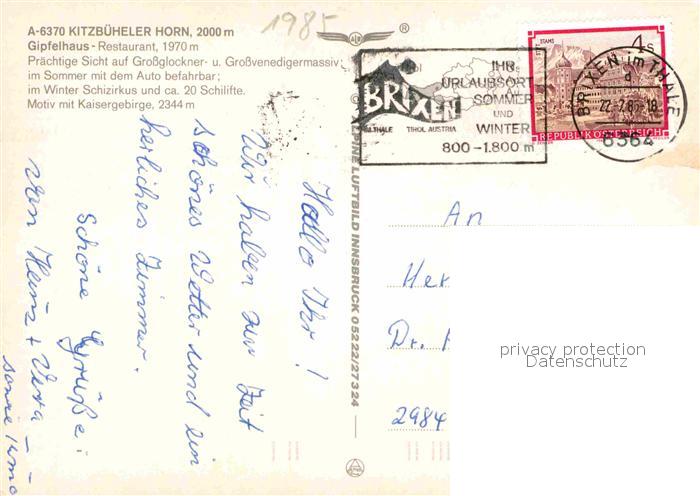 A-6370 KITZBÜHELER HORN, 2000 m
Gipfelhaus - Restaurant, 1970 m
Prächtige Sicht auf Großglockner- u. Großvenedigermassiv;
im Sommer mit dem Auto befahrbar;
im Winter Schizirkus und ca. 20 Schilifte.
Motiv mit Kaisergebirge, 2344 m
1985
®
BRIXEN
IM THALE TIROL AUSTRIA
IHR
URLAUBSORT
SOMMER
UND
WINTER
800-1.800 m
STIFT STAMS
4 S
REPUBLIK ÖSTERREICH
BRIXEN im THALE
6364
ALPINE LUFTBILD INNSBRUCK 05222/27324
Hallo Ihr!
Wir haben zur Zeit
schönes Wetter und ein
herliches Zimmer.
Schöne Grüße
von Heinz + Vera
An
Her
Dr.
2984
privacy protection
Datenschutz